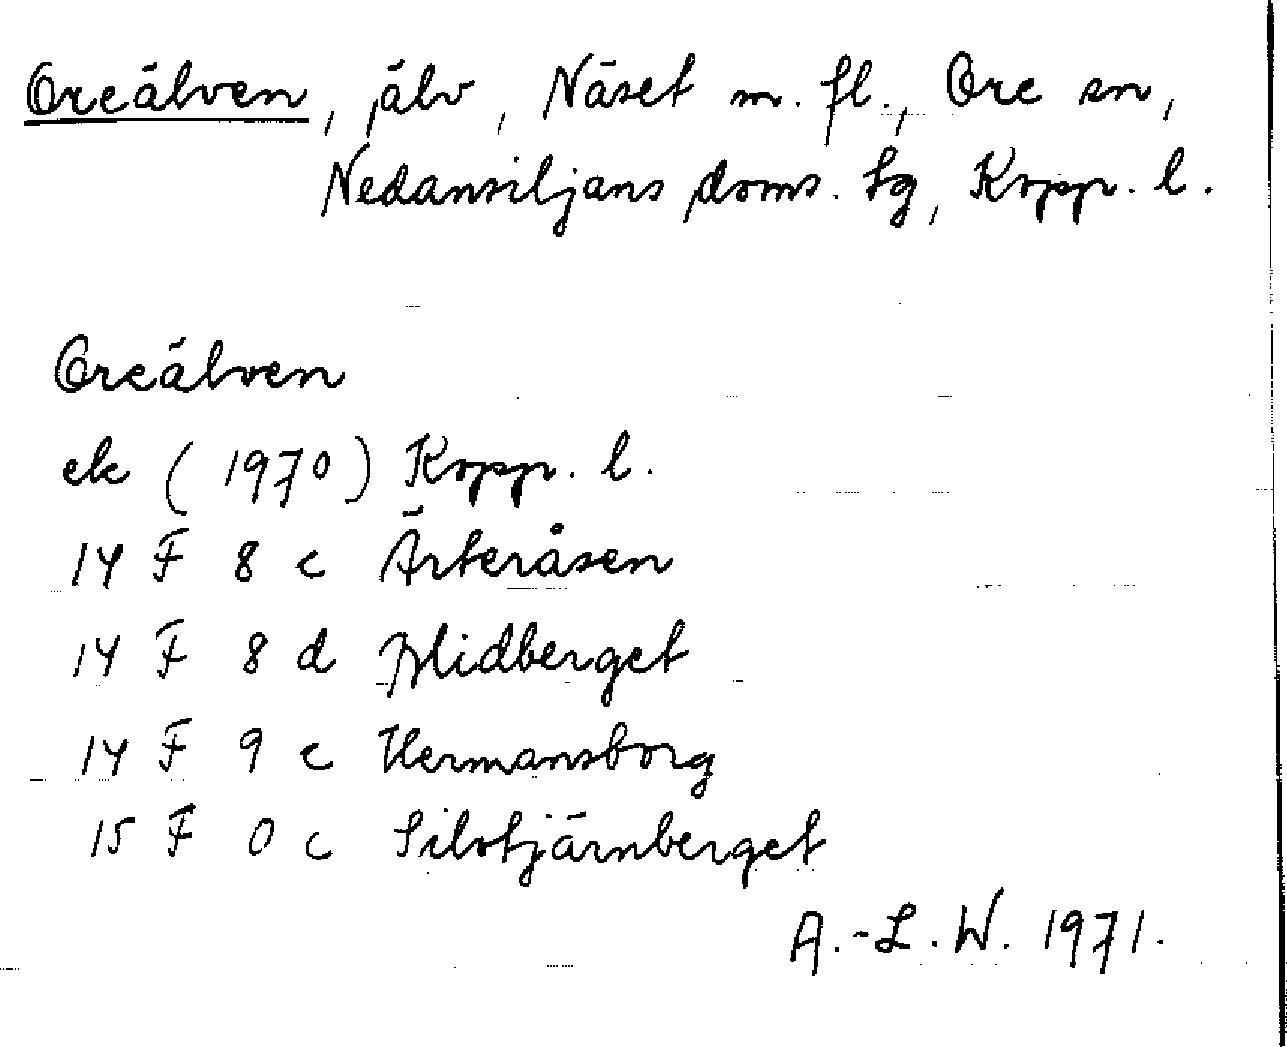 Oreälven, älv, Näset m. fl., Ore sn,
Nedansiljans doms. tg, Kopp. l.
Oreälven
ek (1970) Kopp. l.
14 F 8 c Ärteråsen
14 F 8 d Midberget
14 F 9 c Hermansborg
15 F 0 c Silotjärnberget
A.-L. W. 1971.